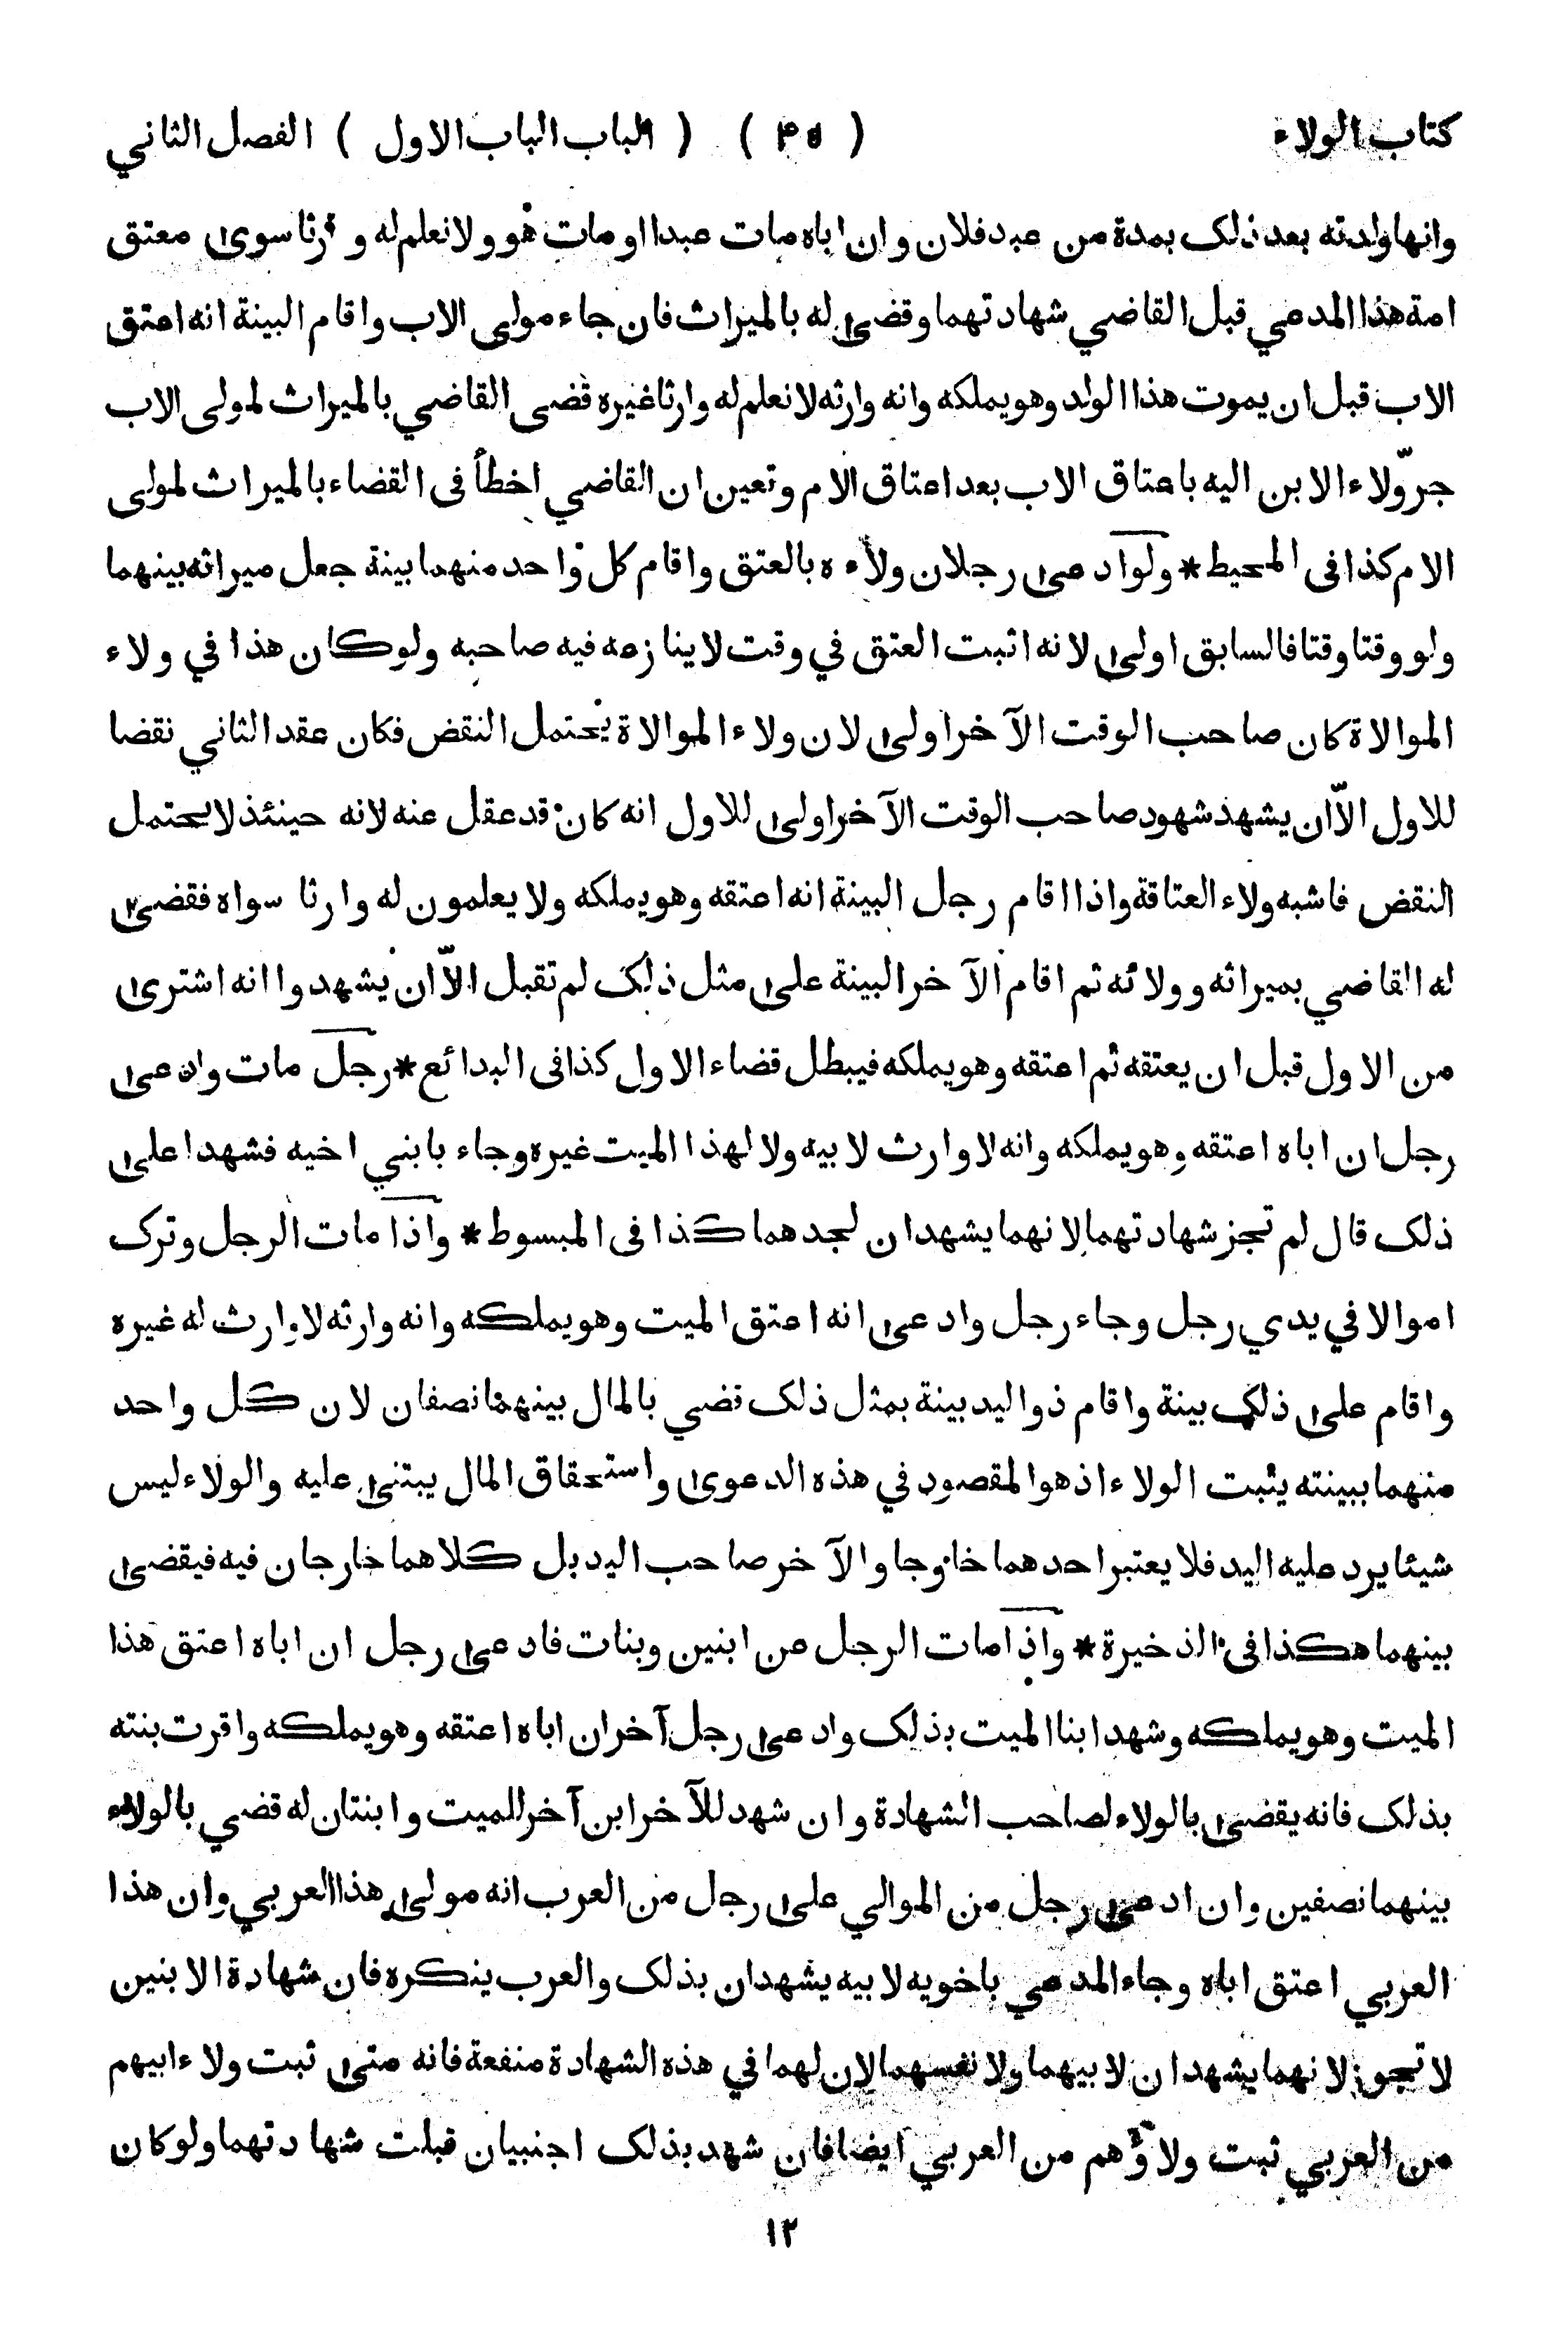 كتاب الولاء ( ٤٥ ) ( الباب الباب الاول ) الفصل الثاني
وانها ولدته بعد ذلك بمدة من عبد فلان وان اباه مات عبدا او مات هو ولا نعلم له وارثا سوى معتق
امة هذا المدعي قبل القاضي شهادتهما وقضى له بالميراث فان جاء مولى الاب واقام البينة انه اعتق
الاب قبل ان يموت هذا الولد وهو يملكه وانه وارثه لا نعلم له وارثا غيره قضى القاضي بالميراث لمولى الاب
جرّ ولاء الابن اليه باعتاق الاب بعد اعتاق الام وتعين ان القاضي اخطأ فى القضاء بالميراث لمولى
الام كذا فى المحيط * ولو ادعى رجلان ولاءه بالعتق واقام كل واحد منهما بينة جعل ميراثه بينهما
ولو وقتا وقتا فالسابق اولى لانه اثبت العتق في وقت لا ينازعه فيه صاحبه ولو كان هذا في ولاء
الموالاة كان صاحب الوقت الآخر اولى لان ولاء الموالاة يحتمل النقض فكان عقد الثاني نقضا
للاول الّا ان يشهد شهود صاحب الوقت الآخر اولى للاول انه كان قد عقل عنه لانه حينئذ لا يحتمل
النقض فاشبه ولاء العتاقة واذا اقام رجل البينة انه اعتقه وهو يملكه ولا يعلمون له وارثا سواه فقضى
له القاضي بميراثه وولائه ثم اقام الآخر البينة على مثل ذلك لم تقبل الّا ان يشهدوا انه اشترى
من الاول قبل ان يعتقه ثم اعتقه وهو يملكه فيبطل قضاء الاول كذا فى البدائع * رجل مات وادعى
رجل ان اباه اعتقه وهو يملكه وانه لا وارث لابيه ولا لهذا الميت غيره وجاء بابني اخيه فشهدا على
ذلك قال لم تجز شهادتهما لانهما يشهدان لجدهما كذا فى المبسوط * واذا مات الرجل وترك
اموالا في يدي رجل وجاء رجل وادعى انه اعتق الميت وهو يملكه وانه وارثه لا وارث له غيره
واقام على ذلك بينة واقام ذو اليد بينة بمثل ذلك قضي بالمال بينهما نصفان لان كل واحد
منهما ببينته يثبت الولاء اذ هو المقصود في هذه الدعوى واستحقاق المال يبتنى عليه والولاء ليس
شيئا يرد عليه اليد فلا يعتبر احدهما خارجا والآخر صاحب اليد بل كلاهما خارجان فيه فيقضى
بينهما هكذا فى الذخيرة * واذا مات الرجل عن ابنين وبنات فادعى رجل ان اباه اعتق هذا
الميت وهو يملكه وشهد ابنا الميت بذلك وادعى رجل آخر ان اباه اعتقه وهو يملكه واقرت بنته
بذلك فانه يقضى بالولاء لصاحب الشهادة وان شهد للآخر ابن آخر للميت وابنتان له قضي بالولاء
بينهما نصفين وان ادعى رجل من الموالي على رجل من العرب انه مولى هذا العربي وان هذا
العربي اعتق اباه وجاء المدعي باخويه لابيه يشهدان بذلك والعرب ينكره فان شهادة الابنين
لا تجوز لانهما يشهدان لابيهما ولا نفسهما لان لهما في هذه الشهادة منفعة فانه متى ثبت ولاء ابيهم
من العربي ثبت ولاؤهم من العربي ايضا فان شهد بذلك اجنبيان قبلت شهادتهما ولو كان
١٢